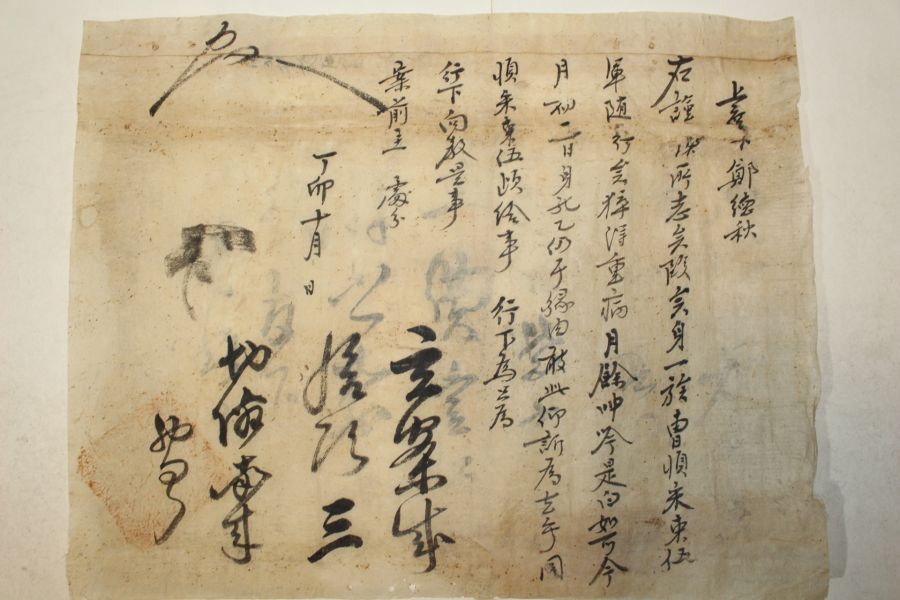 鄭德秋
右謹陳所志矣段矣身一族曺順采束伍
軍随行矣猝得重病月餘呻吟是白如可今
月初二日身死乙仍于緣由敢此仰訴爲去乎同
順采束伍頉給事 行下爲只爲
行下向敎是事
案前主 處分
丁卯十月 日
立案成
給頉
三